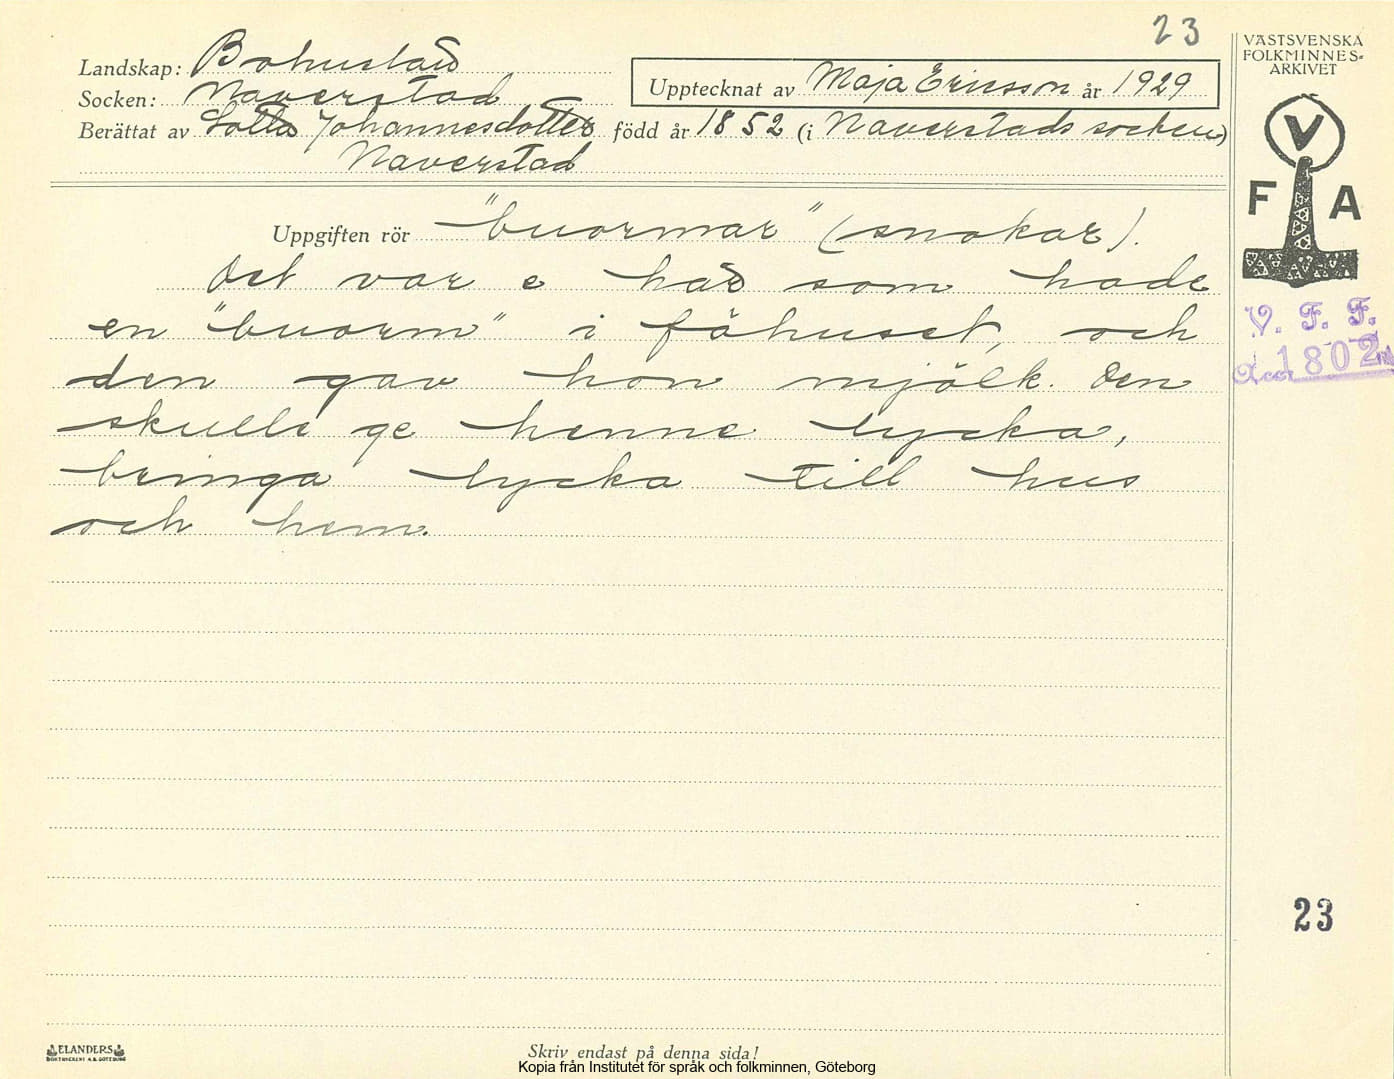 23
VÄSTSVENSKA
FOLKMINNES-
ARKIVET
Landskap: Bohuslän
Socken: Naverstad
Upptecknat av Maja Ericsson år 1929
Berättat av Lotta Johannesdotter född år 1852 (i Naverstads socken)
Naverstad
V
F A
Uppgiften rör "buormar" (snokar).
Det var e här som hade
en "buorm" i fähuset, och
den gav hon mjölk. Den
skulle ge henne lycka,
bringa lycka till hus
och hem.
V. F. F.
Acc. 1802
23
ELANDERS
BOKTRYCKERI A.B. GÖTEBORG
Skriv endast på denna sida!
Kopia från Institutet för språk och folkminnen, Göteborg